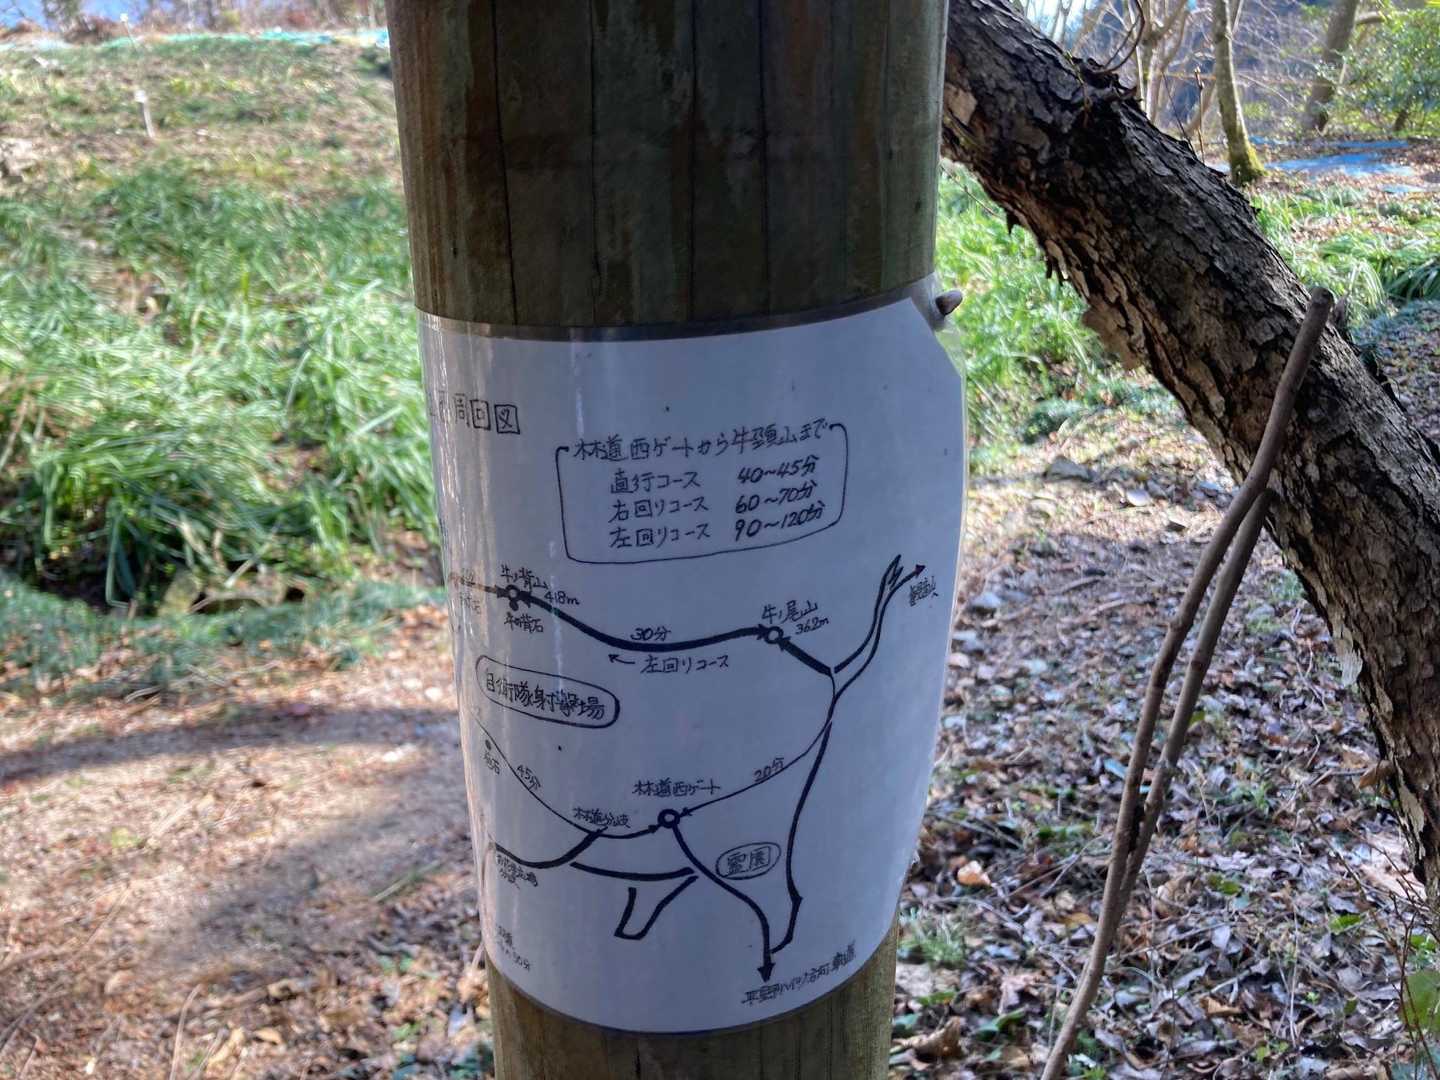 周回図
林道西ゲートから牛頭山まで
直行コース 40~45分
右回りコース 60~70分
左回りコース 90~120分
牛ノ背山
418m
牛の背石
30分
← 左回りコース
牛ノ尾山
362m
自衛隊射撃場
45分
林道分岐
林道西ゲート
20分
霊園